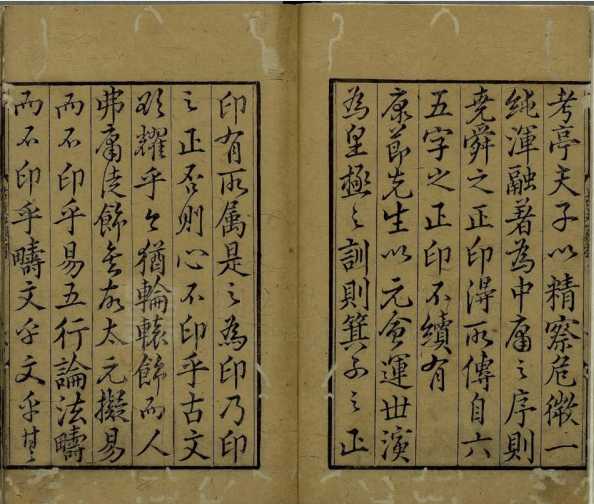 考亭夫子以精察危微一
純渾融著為中庸之序則
堯舜之正印得所傳自六
五字之正印不續有
康節先生以元会運世演
為皇極之訓則箕子之正
印有所属是之為印乃印
之正否則心不印乎古文
欲耀乎今猶輪轅飾而人
弗庸徒飾故太元擬易
而不印乎易五行論法疇
而不印乎疇文乎文乎